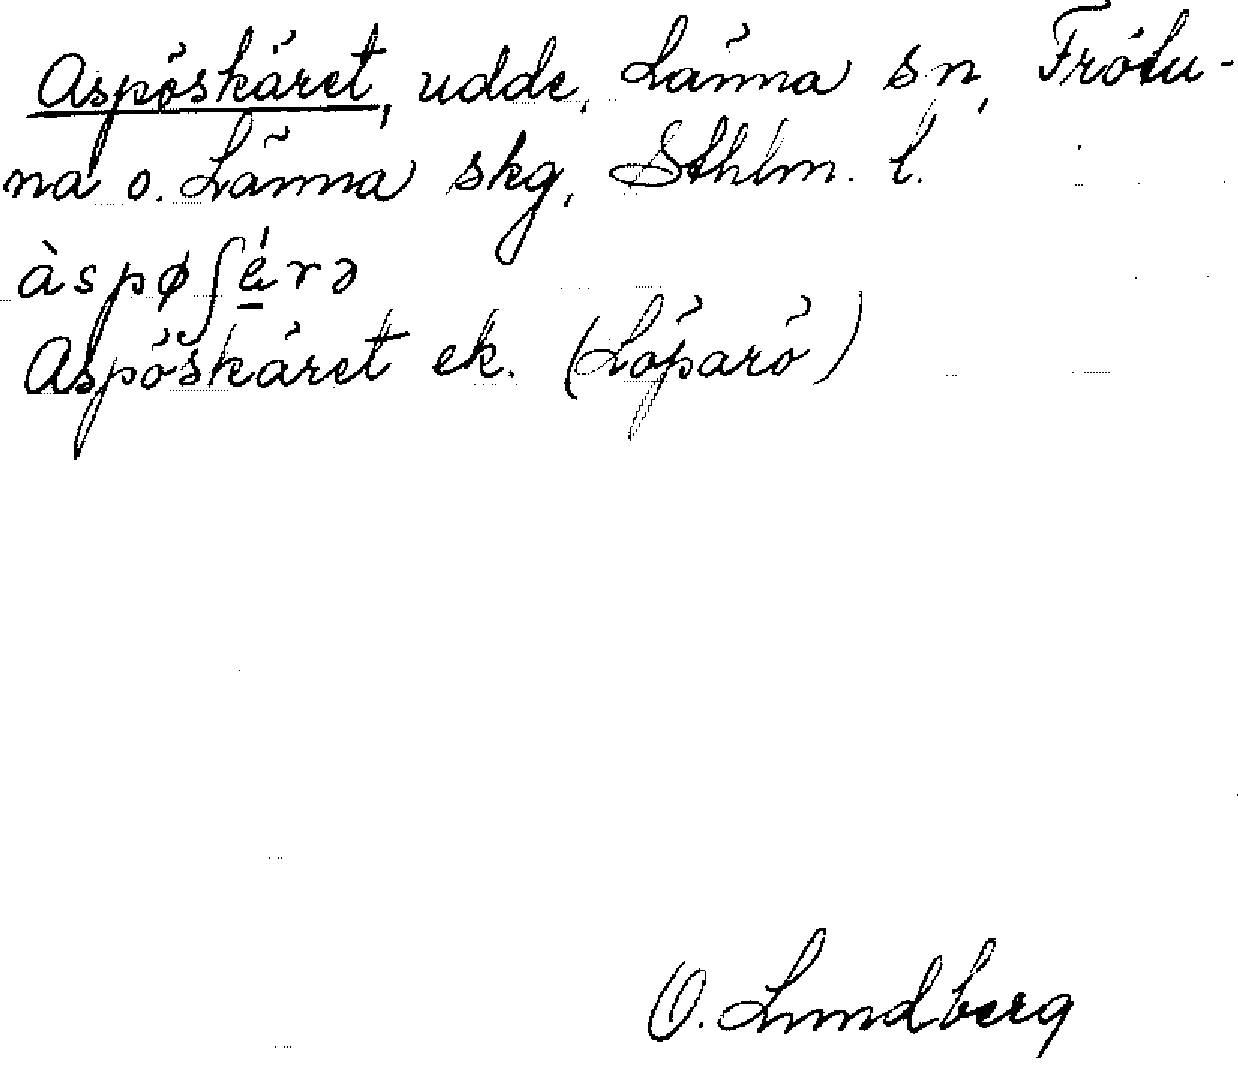 Aspöskäret, udde, Länna sn, Frötu-
na o. Länna skg, Sthlm. l.
àspøʃé̱rə
Aspöskäret ek. (Löparö)
O. Lundberg